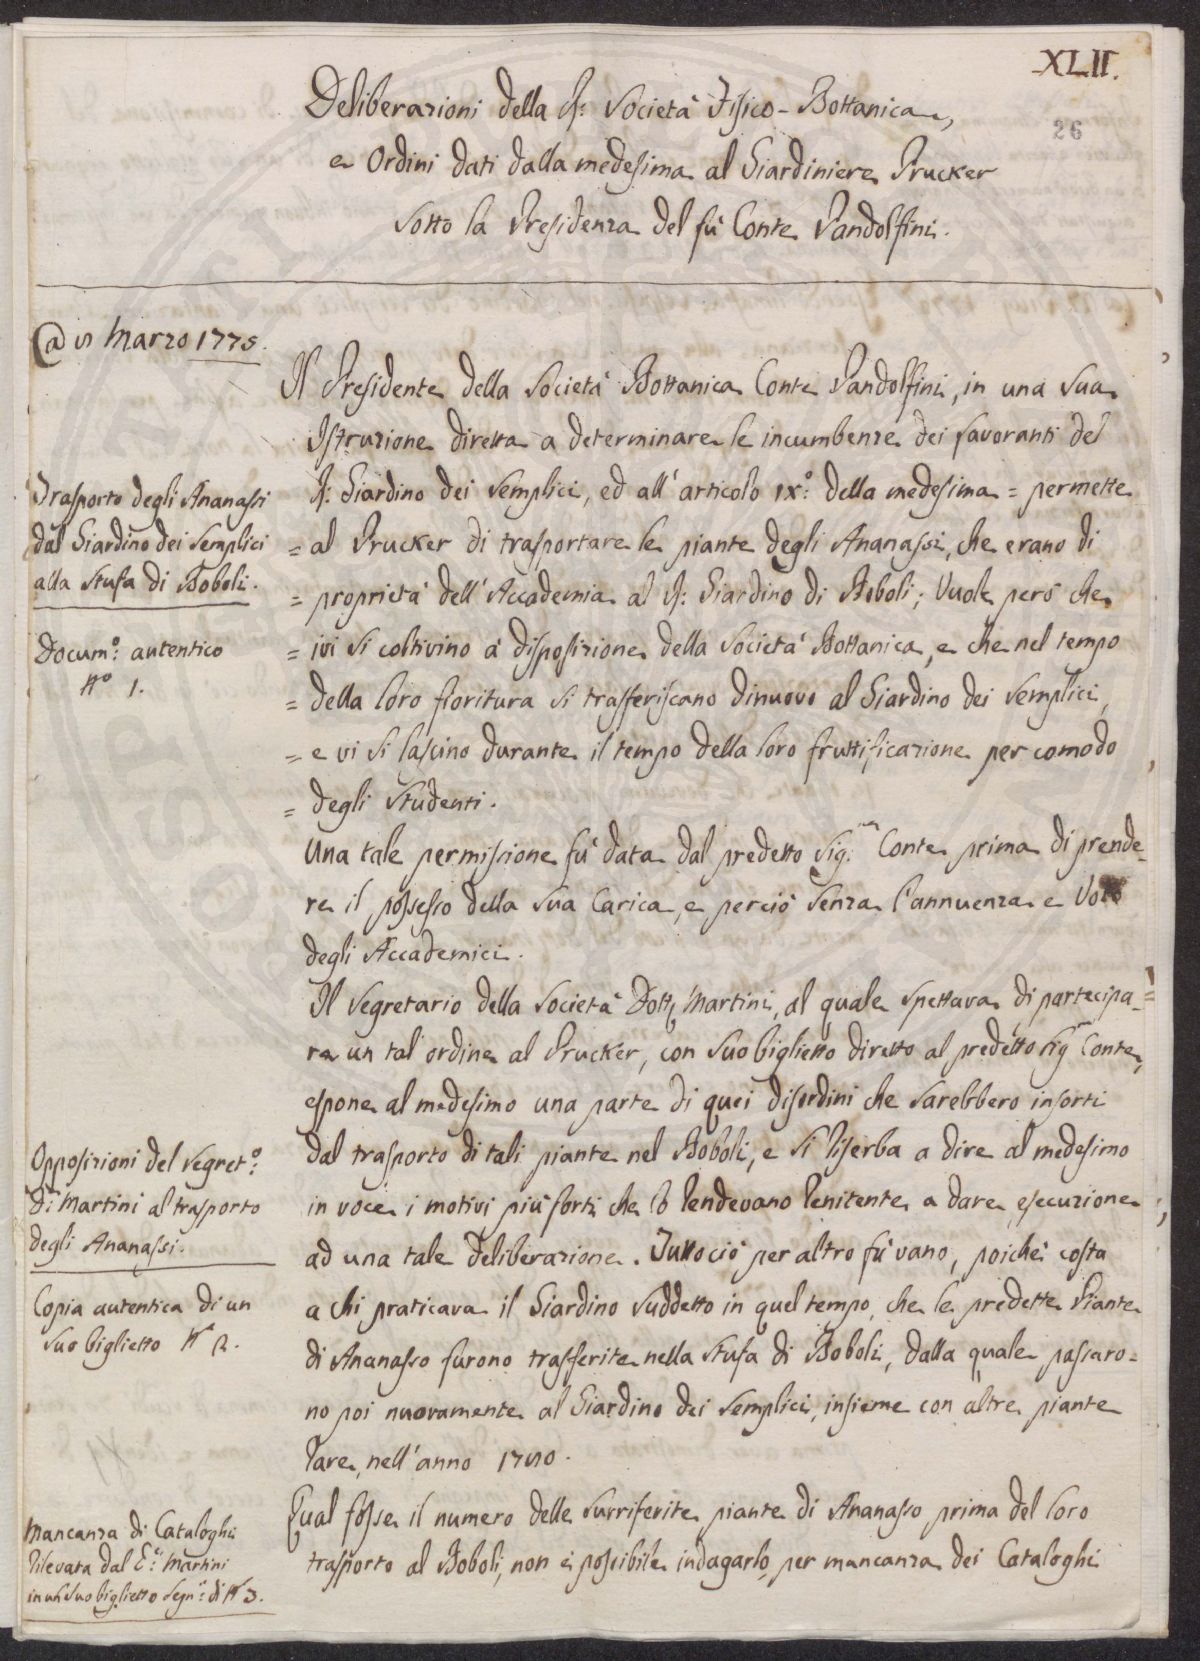 XLII.
26
Deliberazioni della R: Società Fisico-Bottanica,
e Ordini dati dalla medesima al Giardiniere Prucker
sotto la Presidenza del fù Conte Pandolfini.
Marzo 1775.
Il Presidente della Società Bottanica Conte Pandolfini, in una sua
Istruzione diretta a determinare le incumbenze dei lavoranti del
R: Giardino dei Semplici, ed all'articolo IX:° della medesima = permette
= al Prucker di trasportare le piante degli Ananassi, che erano di
= proprietà dell'Accademia al R: Giardino di Boboli; Vuole però che
= ivi si coltivino à disposizione della Società Bottanica, e che nel tempo
= della loro fioritura si trasferiscano dinuovo al Giardino dei Semplici,
= e vi si lascino durante il tempo della loro fruttificazione per comodo
= degli Studenti.
Trasporto degli Ananassi
dal Giardino dei Semplici
alla Stufa di Boboli.
Docum:° autentico
N° 1.
Una tale permissione fù data dal predetto Sig:re Conte prima di prende-
re il possesso della sua Carica, e perciò senza l'annuenza e Voto
degli Accademici.
Il Segretario della Società Dott: Martini, al quale spettava di partecipa=
re un tal ordine al Prucker, con suo biglietto diretto al predetto Sig:re Conte,
espone al medesimo una parte di quei disordini che sarebbero insorti
dal trasporto di tali piante nel Boboli, e si riserba a dire al medesimo
in voce i motivi più forti che lo rendevano renitente a dare esecuzione
ad una tale deliberazione. Tutto ciò per altro fù vano, poichè costa
a chi praticava il Giardino suddetto in quel tempo, che le predette Piante
di Ananasso furono trasferite nella Stufa di Boboli, dalla quale passaro=
no poi nuovamente al Giardino dei Semplici, insieme con altre piante
rare, nell'anno
Opposizioni del Segret:°
D: Martini al trasporto
degli Ananassi.
Copia autentica di un
suo biglietto N° 2.
Qual fosse il numero delle surriferite piante di Ananasso prima del loro
trasporto al Boboli, non è possibile indagarlo, per mancanza dei Cataloghi
Mancanza di Cataloghi
rilevata dal Martini
in un suo biglietto Segn:° di N° 3.